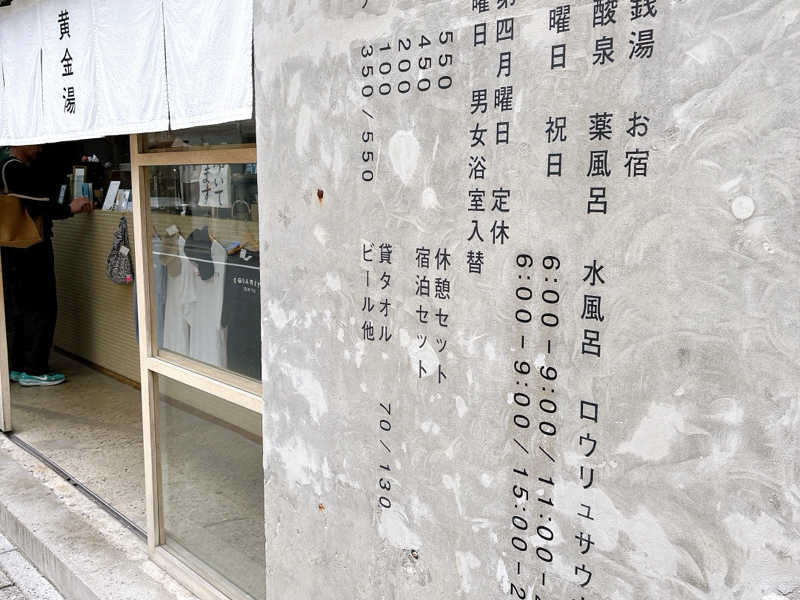 黄金湯
銭湯 お宿
酸泉 薬風呂 水風呂 ロウリュサウ
曜日 祝日 6:00-9:00/11:00-2
第四月曜日 定休 6:00-9:00/15:00-2
曜日 男女浴室入替
550 休憩セット
450 宿泊セット
200
100 貸タオル 70/130
350/550 ビール他